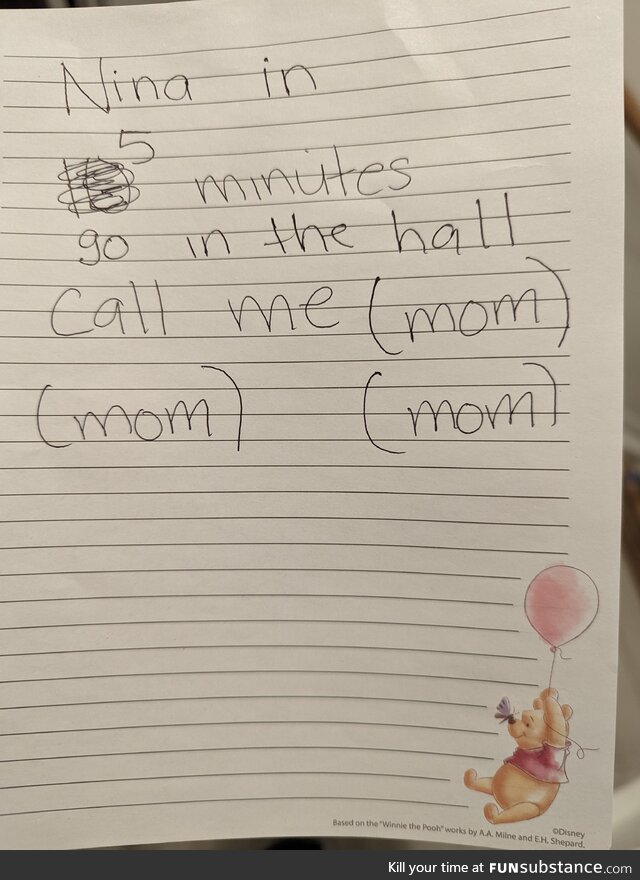 Nina in
5
minutes
go in the hall
call me (mom)
(mom) (mom)
©Disney
Based on the "Winnie the Pooh" works by A.A. Milne and E.H. Shepard.
Kill your time at FUNsubstance.com